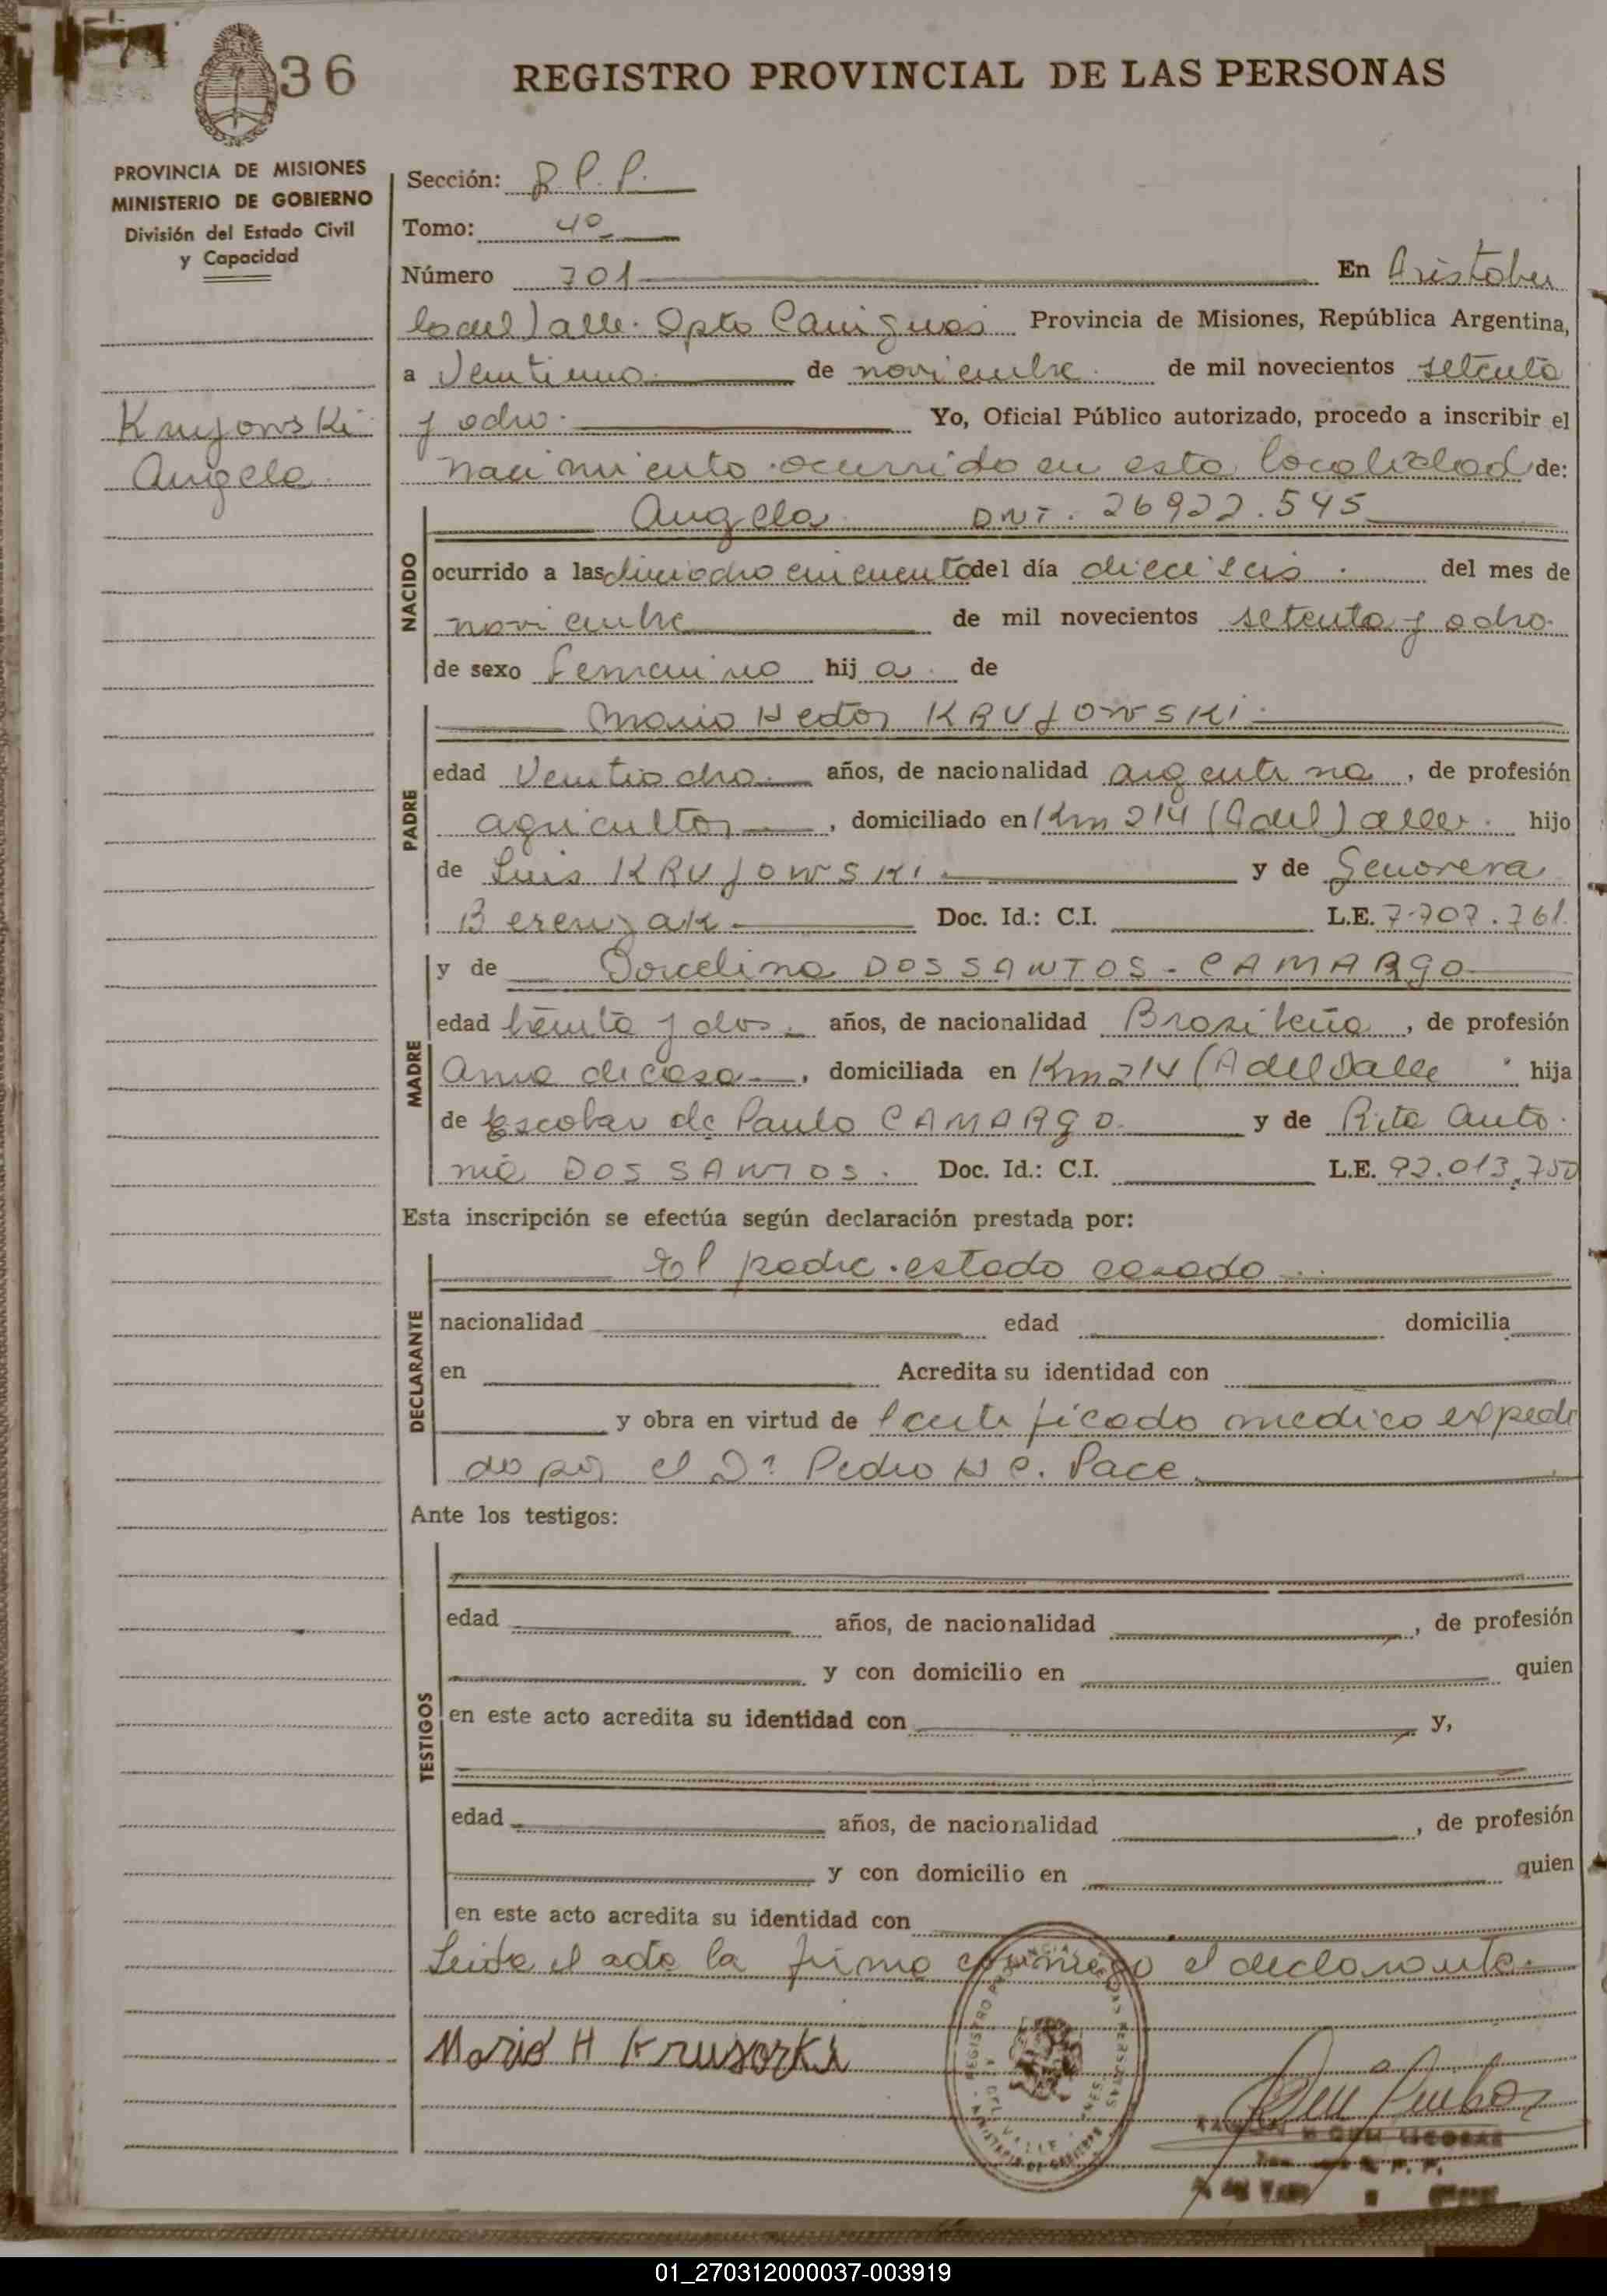 36
REGISTRO PROVINCIAL DE LAS PERSONAS
PROVINCIA DE MISIONES
MINISTERIO DE GOBIERNO
División del Estado Civil
y Capacidad
Krujowski
Angela
Sección: R.P.P.
Tomo: 4º
Número 701 En Aristobu
lo del Valle. Dpto Cainguas Provincia de Misiones, República Argentina,
a Veintiuno de noviembre de mil novecientos setenta
y ocho. Yo, Oficial Público autorizado, procedo a inscribir el
nacimiento ocurrido en esta localidad de:
NACIDO
Angela DNI. 26922.545
ocurrido a las dieciocho cincuenta del día dieciseis del mes de
noviembre de mil novecientos setenta y ocho.
de sexo femenino hij a. de
PADRE
Mario Hector KRUJOWSKI.
edad Veintiocho años, de nacionalidad argentina, de profesión
agricultor, domiciliado en Km 214 (A del Valle. hijo
de Luis KRUJOWSKI y de Genoveva
Berenzak Doc. Id.: C.I. L.E. 7.707.761.
MADRE
y de Dorcelina DOS SANTOS - CAMARGO
edad treinta y dos años, de nacionalidad Brasileña, de profesión
Ama de casa, domiciliada en Km 214 (A del Valle hija
de Escobar de Paulo CAMARGO y de Rita Anto
nia DOS SANTOS. Doc. Id.: C.I. L.E. 92.013.750
Esta inscripción se efectúa según declaración prestada por:
DECLARANTE
El padre. estado casado
nacionalidad edad domicilia
en Acredita su identidad con
y obra en virtud de Certificado medico expedi
do por el Dr Pedro H C. Pace.
Ante los testigos:
TESTIGOS
edad años, de nacionalidad , de profesión
y con domicilio en quien
en este acto acredita su identidad con y,
edad años, de nacionalidad , de profesión
y con domicilio en quien
en este acto acredita su identidad con
Leida el acta la firma conmigo el declarante.
Mario H Krusorki
01_270312000037-003919